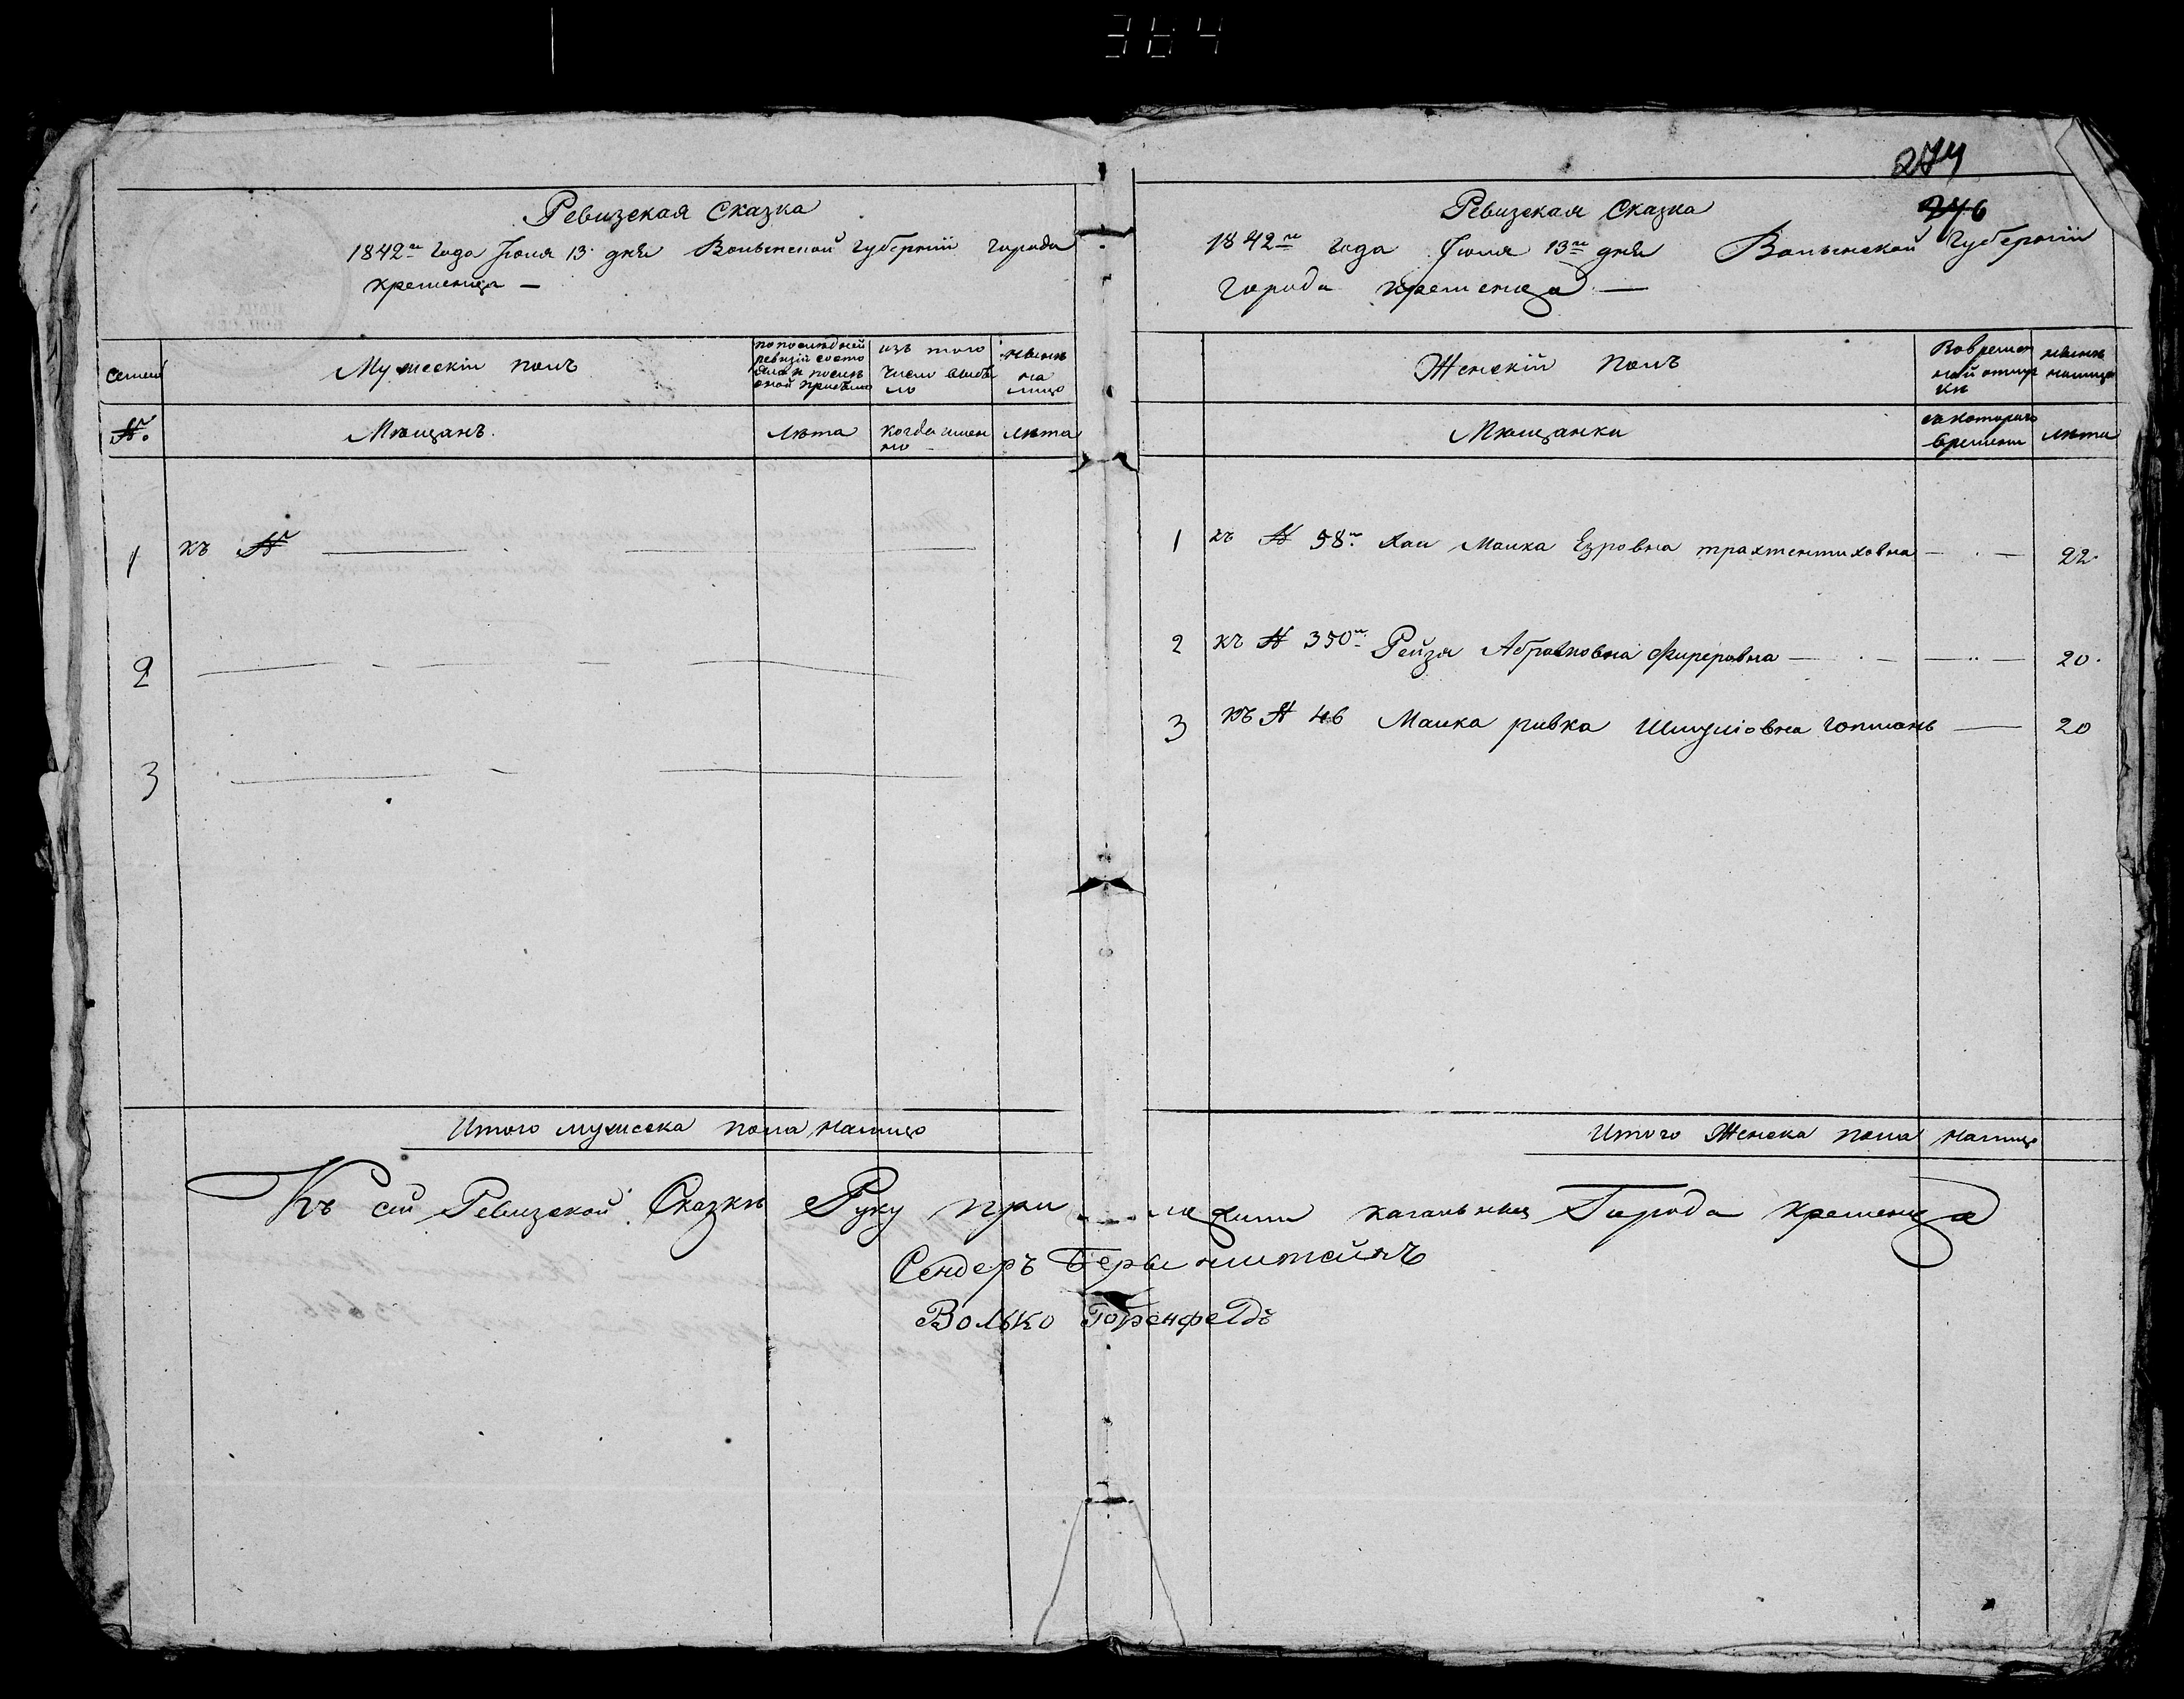 384
274
746
Ревизская Сказка
1842го года Июля 13 дня Волынской губернии города
кременца —
семей
Мужескiй полъ
по последней ревизiй состояло и после оной прибыло
изъ того числа выбыло
ныне на лицо
№.
Мещанъ.
лета
когда именно
лета
1 къ №
2
3
Итого мужеска пола налицо
Ревизская Сказка
1842го года Июля 13го дня Волынской Губернiи
города кременца —
Женскiй полъ
Во временной отлучке
ныне налицо
Мещанки
съ котораго времени
лета
1 къ № 58му Хаи Малка Езровна трахтентиховна — 22.
2 къ № 350му Рейзя Абрамовна Фиреровна — 20.
3 къ № 46 Малка ривка Шмулiовна гопманъ — 20
Итого Женска пола налицо
Къ сей Ревизской Сказке Руку приложили кагальныя Города кременца
Сендеръ Беренштейнъ
Волько Горенфелдъ